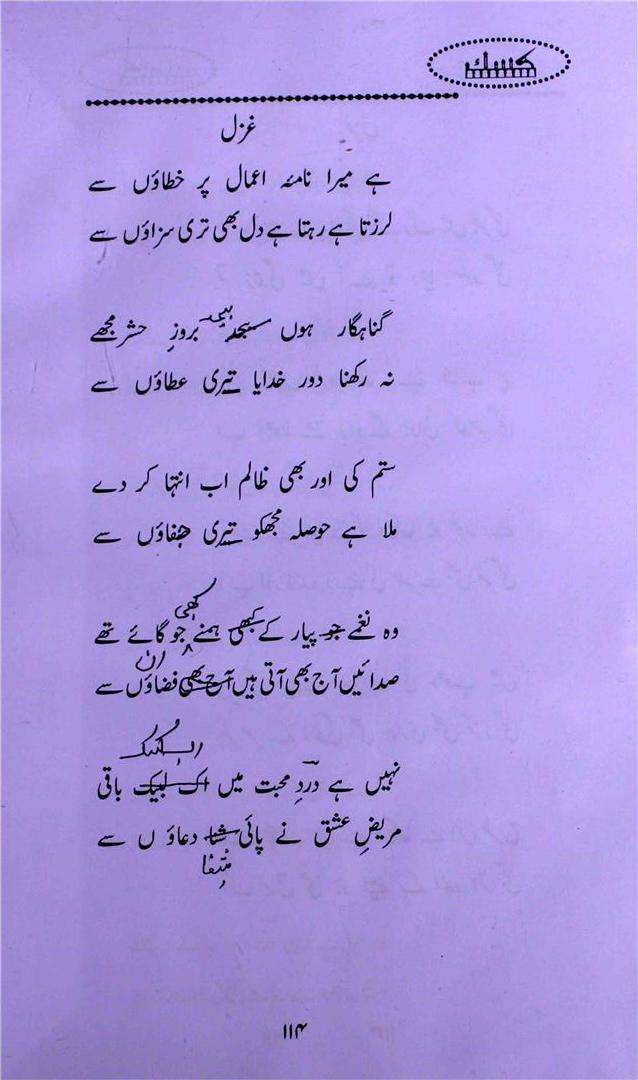 کسک
غزل
ہے میرا نامۂ اعمال پر خطاؤں سے
لرزتا ہے رہتا ہے دل بھی تری سزاؤں سے
گناہگار ہوں بیحد بروزِ حشر مجھے
نہ رکھنا دور خدایا تیری عطاؤں سے
ستم کی اور بھی ظالم اب انتہا کر دے
ملا ہے حوصلہ مجھکو تیری جفاؤں سے
کبھی
وہ نغمے جو پیار کے کبھی ہمنے جو گائے تھے
ان
صدائیں آج بھی آتی ہیں آج بھی فضاؤں سے
اب کسک
نہیں ہے دردِ محبت میں اک لبیک باقی
مریضِ عشق نے پائی شا دعاؤں سے
شفا
۱۱۴